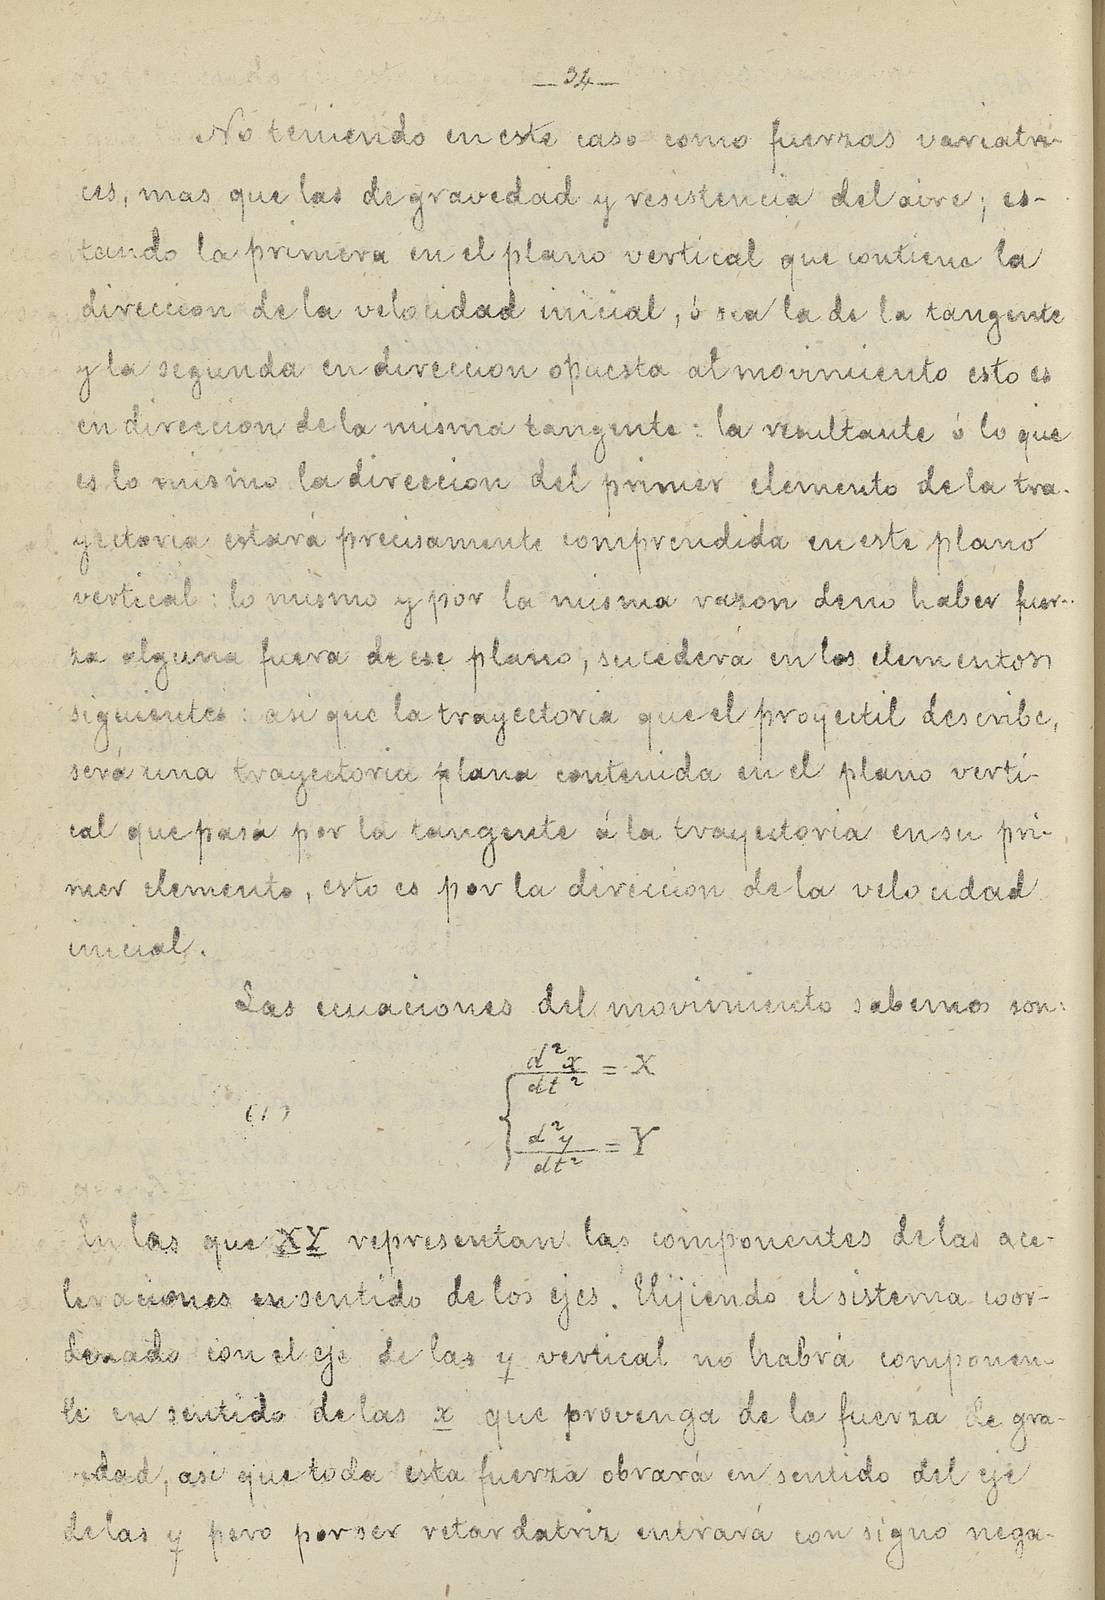 —34—
No teniendo en este caso como fuerzas variatri-
ces, mas que las de gravedad y resistencia del aire; es-
tando la primera en el plano vertical que contiene la
direccion de la velocidad inicial, ó sea la de la tangente
y la segunda en direccion opuesta al movimiento esto es
en direccion de la misma tangente: la resultante ó lo que
es lo mismo la direccion del primer elemento de la tra-
yectoria estará precisamente comprendida en este plano
vertical: lo mismo y por la misma razon de no haber fuer-
za alguna fuera de ese plano, sucederá en los elementos
siguientes: asi que la trayectoria que el proyectil describe,
será una trayectoria plana contenida en el plano verti-
cal que pasa por la tangente á la trayectoria en su pri-
mer elemento, esto es por la direccion de la velocidad
inicial.
Las ecuaciones del movimiento sabemos son:
(1) { d²x/dt² = X
d²y/dt² = Y
En las que X Y representan las componentes de las ace-
leraciones en sentido de los ejes. Elijiendo el sistema coor-
denado con el eje de las y vertical no habrá componen-
te en sentido de las x que provenga de la fuerza de gra-
vedad, asi que toda esta fuerza obrará en sentido del eje
de las y pero por ser retardatriz entrará con signo nega-